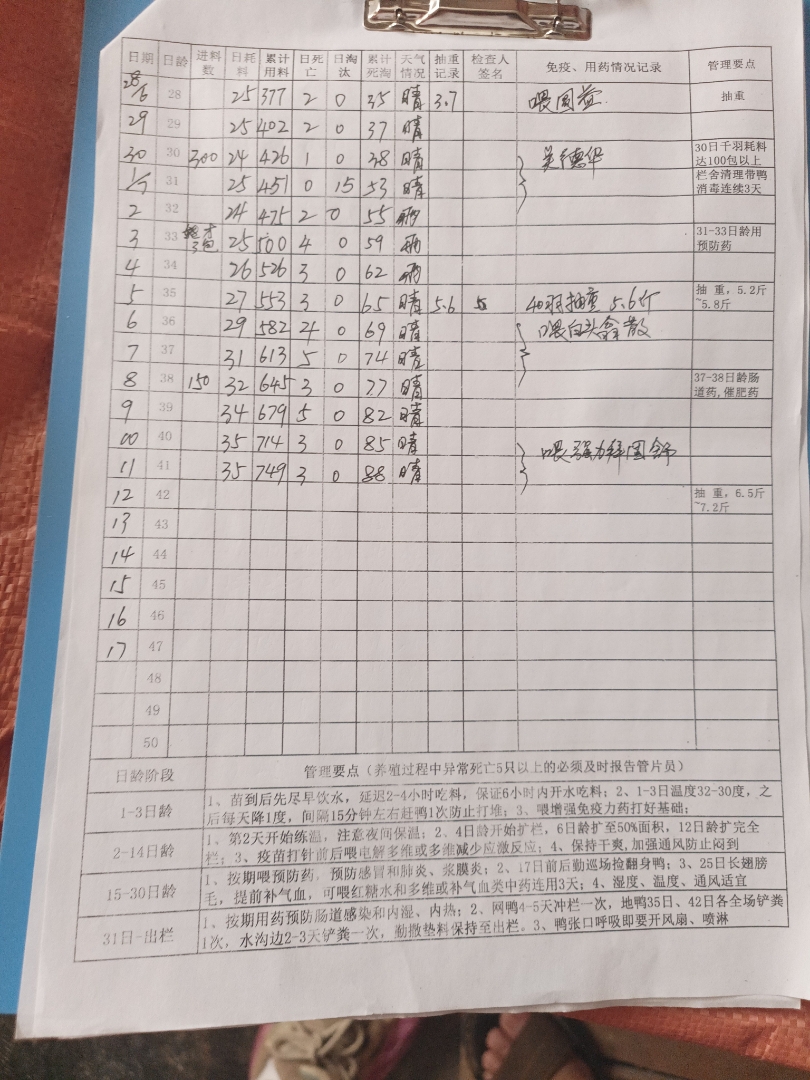 日期 日龄 进料数 日耗料 累计用料 日死亡 日淘汰 累计死淘 天气情况 抽重记录 检查人签名 免疫、用药情况记录 管理要点
28/6 28 25 377 2 0 35 晴 3.7 喂圆益 抽重
29 29 25 402 2 0 37 晴
30 30 300 24 426 1 0 38 晴 30日千羽耗料达100包以上
1/7 31 25 451 0 15 53 晴 栏舍清理带鸭消毒连续3天
2 32 24 475 2 0 55 雨
3 33 25 500 4 0 59 雨 31-33日龄用预防药
4 34 26 526 3 0 62 雨
5 35 27 553 3 0 65 晴 5.6 40羽抽重 5.6斤 抽重,5.2斤~5.8斤
6 36 29 582 4 0 69 晴 喂白头翁散
7 37 31 613 5 0 74 晴
8 38 150 32 645 3 0 77 晴 37-38日龄肠道药,催肥药
9 39 34 679 5 0 82 晴
10 40 35 714 3 0 85 晴
11 41 35 749 3 0 88 晴
12 42 抽重,6.5斤~7.2斤
13 43
14 44
15 45
16 46
17 47
48
49
50
日龄阶段 管理要点(养殖过程中异常死亡5只以上的必须及时报告管片员)
1-3日龄 1、苗到后先尽早饮水,延迟2-4小时吃料,保证6小时内开水吃料;2、1-3日温度32-30度,之
后每天降1度,间隔15分钟左右赶鸭1次防止打堆;3、喂增强免疫力药打好基础;
2-14日龄 1、第2天开始练温,注意夜间保温;2、4日龄开始扩栏,6日龄扩至50%面积,12日龄扩完全
栏;3、疫苗打针前后喂电解多维或多维减少应激反应;4、保持干爽,加强通风防止闷到
15-30日龄 1、按期喂预防药,预防感冒和肺炎、浆膜炎;2、17日前后勤巡场捡翻身鸭;3、25日长翅膀
毛,提前补气血,可喂红糖水和多维或补气血类中药连用3天;4、湿度、温度、通风适宜
31日-出栏 1、按期用药预防肠道感染和内湿、内热;2、网鸭4-5天冲栏一次,地鸭35日、42日各全场铲粪
1次,水沟边2-3天铲粪一次,勤撒垫料保持至出栏。3、鸭张口呼吸即要开风扇、喷淋